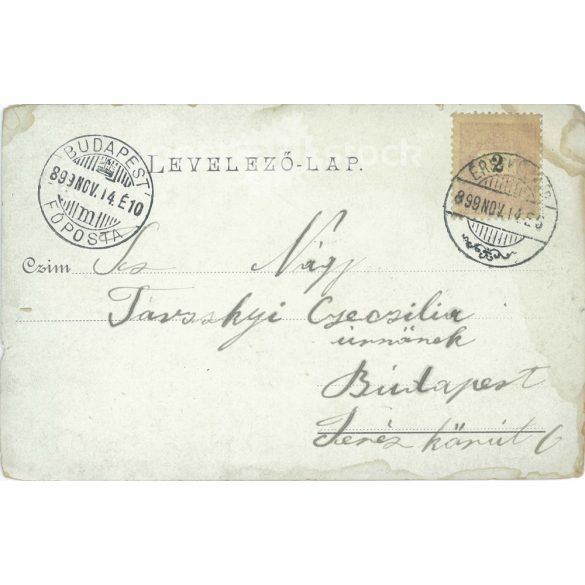 BUDAPEST
899 NOV. 14. É 10
m
FŐPOSTA
LEVELEZŐ-LAP.
2
899 NOV. 14. E
Czim
Nágy
Csecsilia
úrnőnek
Búdapest
Teréz körút 6